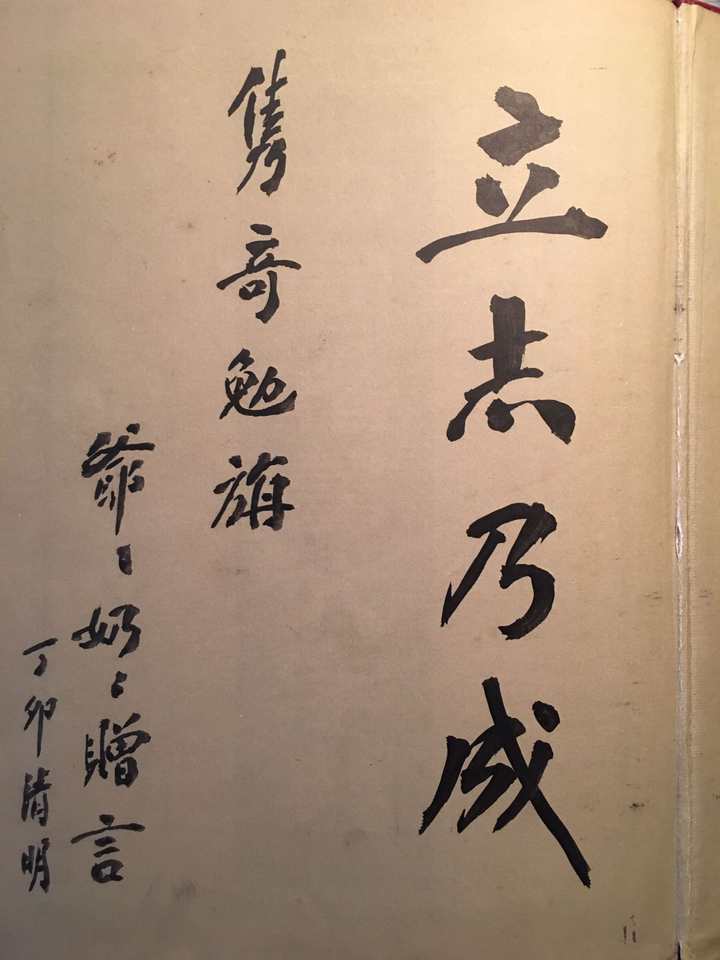 立志乃成
隽奇勉旃
爺〻奶〻贈言
丁卯清明